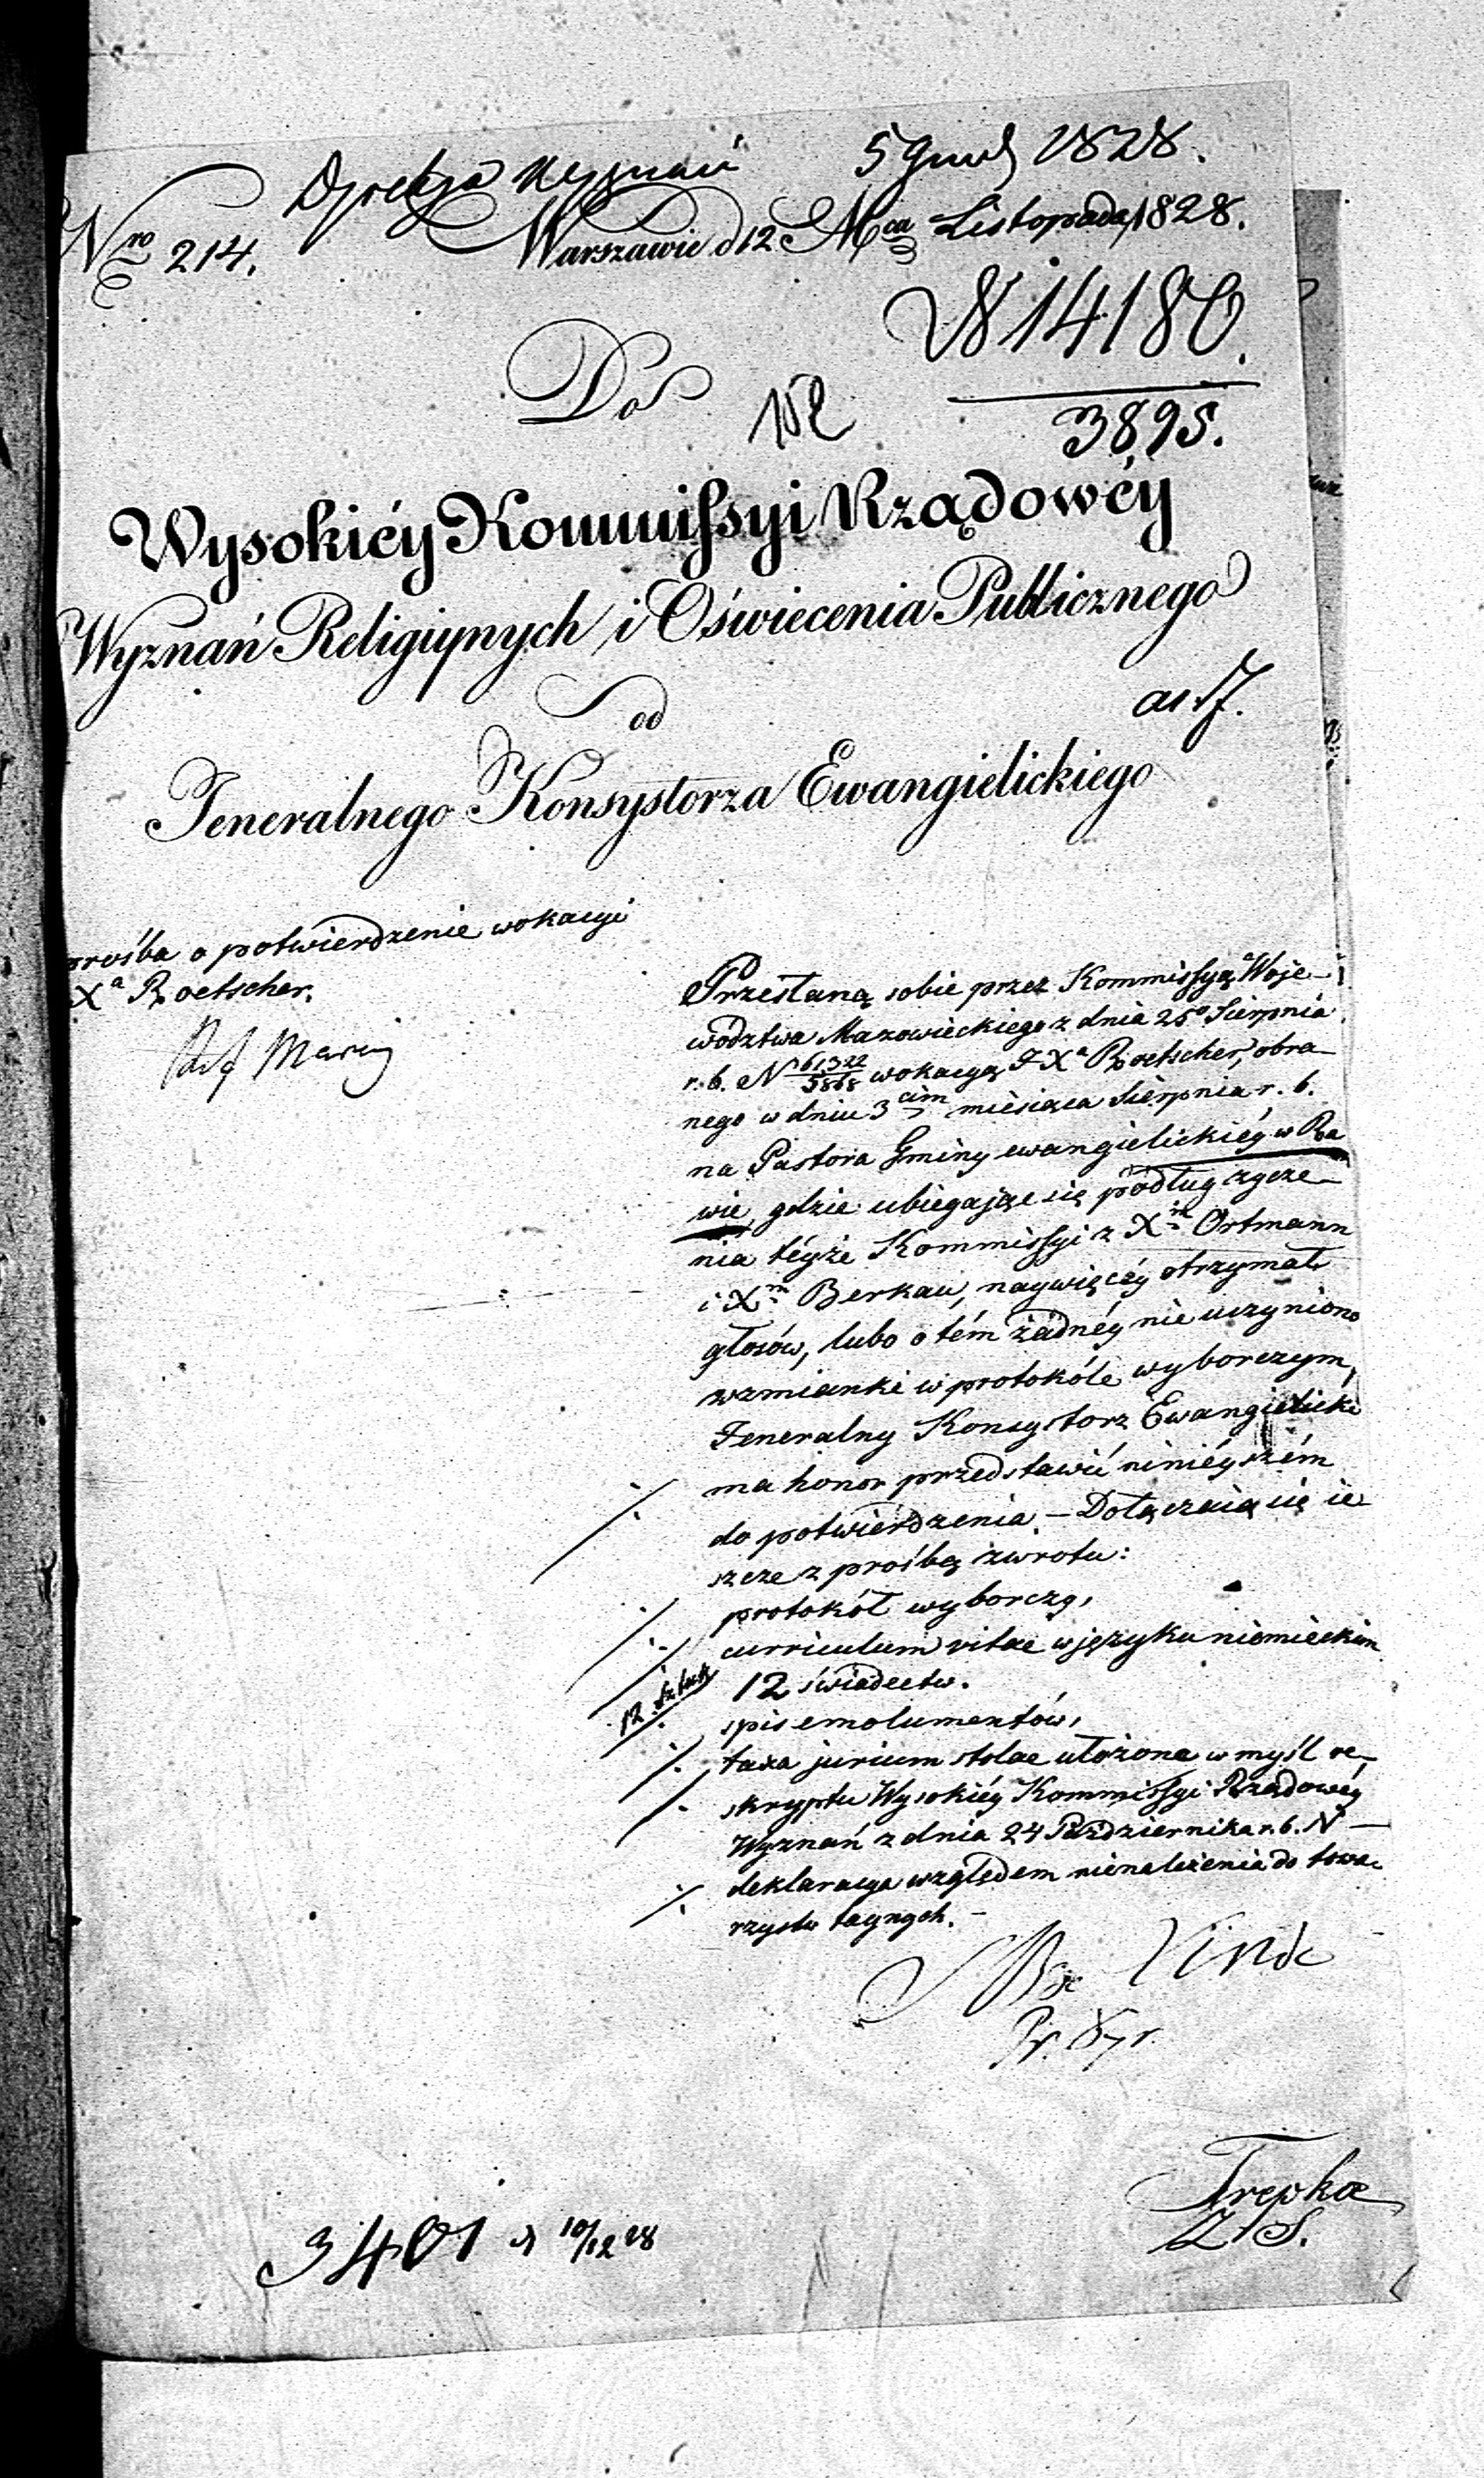 Dyrekcja Wyznań 5 Grud 1828.
Nro 214. Warszawie d 12 Mca Listopada 1828.
N 14180.
3895.
Do
152
Wysokiéy Kommissyi Rządowéy
Wyznań Religiynych i Oświecenia Publicznego
od
Jeneralnego Konsystorza Ewangielickiego
prośba o potwierdzenie wokacyi
Xa Roetscher.
Przesłaną sobie przez Kommissyą Woje-
wództwa Mazowieckiego z dnia 25o Sierpnia
r. b. N 61322/5868 wokacyą JXa Roetscher, obra-
nego w dniu 3cim miesiąca Sierpnia r. b.
na Pastora Gminy ewangielickiéy w Ra
wie, gdzie ubiegając się podług rzecze-
nia téyże Kommissyi z Xm Ortmann
i Xm Berkau, naywięcéy otrzymał
głosów, lubo o tém żadnéy nie uczyniono
wzmianki w protokóle wyborczym,
Jeneralny Konsystorz Ewangielicki
ma honor przedstawić niniéyszém
do potwierdzenia. – Dołączaią się ie-
szcze z prośbą zwrotu:
protokół wyborczy,
curriculum vitae w języku niemieckim
12 sztuk 12 świadectw.
spis emolumentów,
taxa jurium stolae ułożona w myśl re-
skryptu Wysokiéy Kommissyi Rządowéy
Wyznań z dnia 24 Października r. b. N –
deklaracya względem nienależenia do towa-
rzystw taynych. –
Trepka
Z S.
3401 d 10/12 28